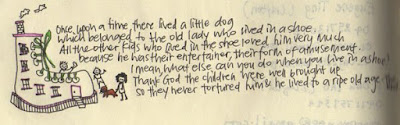 Once upon a time, there lived a little dog
which belonged to the old lady who lived in a shoe.
All the other kids who lived in the shoe loved him very much
because he was their entertainer, their form of amusement.
I mean, what else can you do when you live in a shoe!
Thank God the children were well brought up
so they never tortured him & he lived to a ripe old age.